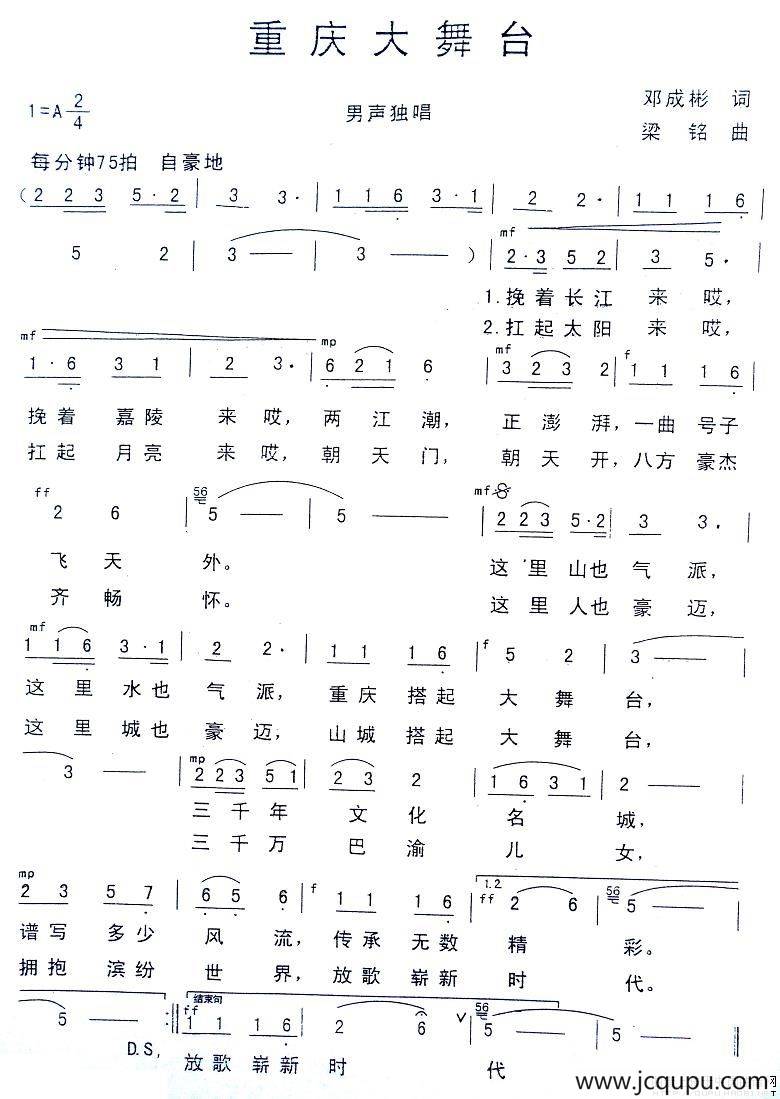 重庆大舞台
1=A 2/4
男声独唱
邓成彬 词
梁 铭 曲
每分钟75拍 自豪地
( 2 2 3 5·2 | 3 3· | 1 1 6 3·1 | 2 2· | 1 1 1 6 |
mf
5 2 | 3 — | 3 — ) | 2·3 5 2 | 3 5· |
1.挽着长江 来 哎,
2.扛起太阳 来 哎,
mf mp mf f
1·6 3 1 | 2 3· | 6 2 1 6 | 3 2 3 2 | 1 1 1 6 |
挽着 嘉陵 来 哎, 两江潮, 正澎湃, 一曲号子
扛起 月亮 来 哎, 朝天门, 朝天开, 八方豪杰
ff 56 mf
2 6 | 5 — | 5 — | 2 2 3 5·2 | 3 3· |
飞 天 外。 这里山也 气 派,
齐 畅 怀。 这里人也 豪 迈,
mf f
1 1 6 3·1 | 2 2· | 1 1 1 6 | 5 2 | 3 — |
这里 水也 气 派, 重庆 搭起 大 舞 台,
这里 城也 豪 迈, 山城 搭起 大 舞 台,
mp
3 — | 2 2 3 5 1 | 2 3 2 | 1 6 3 1 | 2 — |
三千年 文 化 名 城,
三千万 巴 渝 儿 女,
mp f 1.2 ff 56
2 3 5 7 | 6 5 6 | 1 1 1 6 | 2 6 | 5 — |
谱写 多少 风 流, 传承 无数 精 彩。
拥抱 缤纷 世 界, 放歌 崭新 时 代。
结束句
ff 56
5 — :|| 1 1 1 6 | 2 6 ∨ | 5 — | 5 — ||
D.S. 放歌 崭新 时 代
www.jcqupu.com